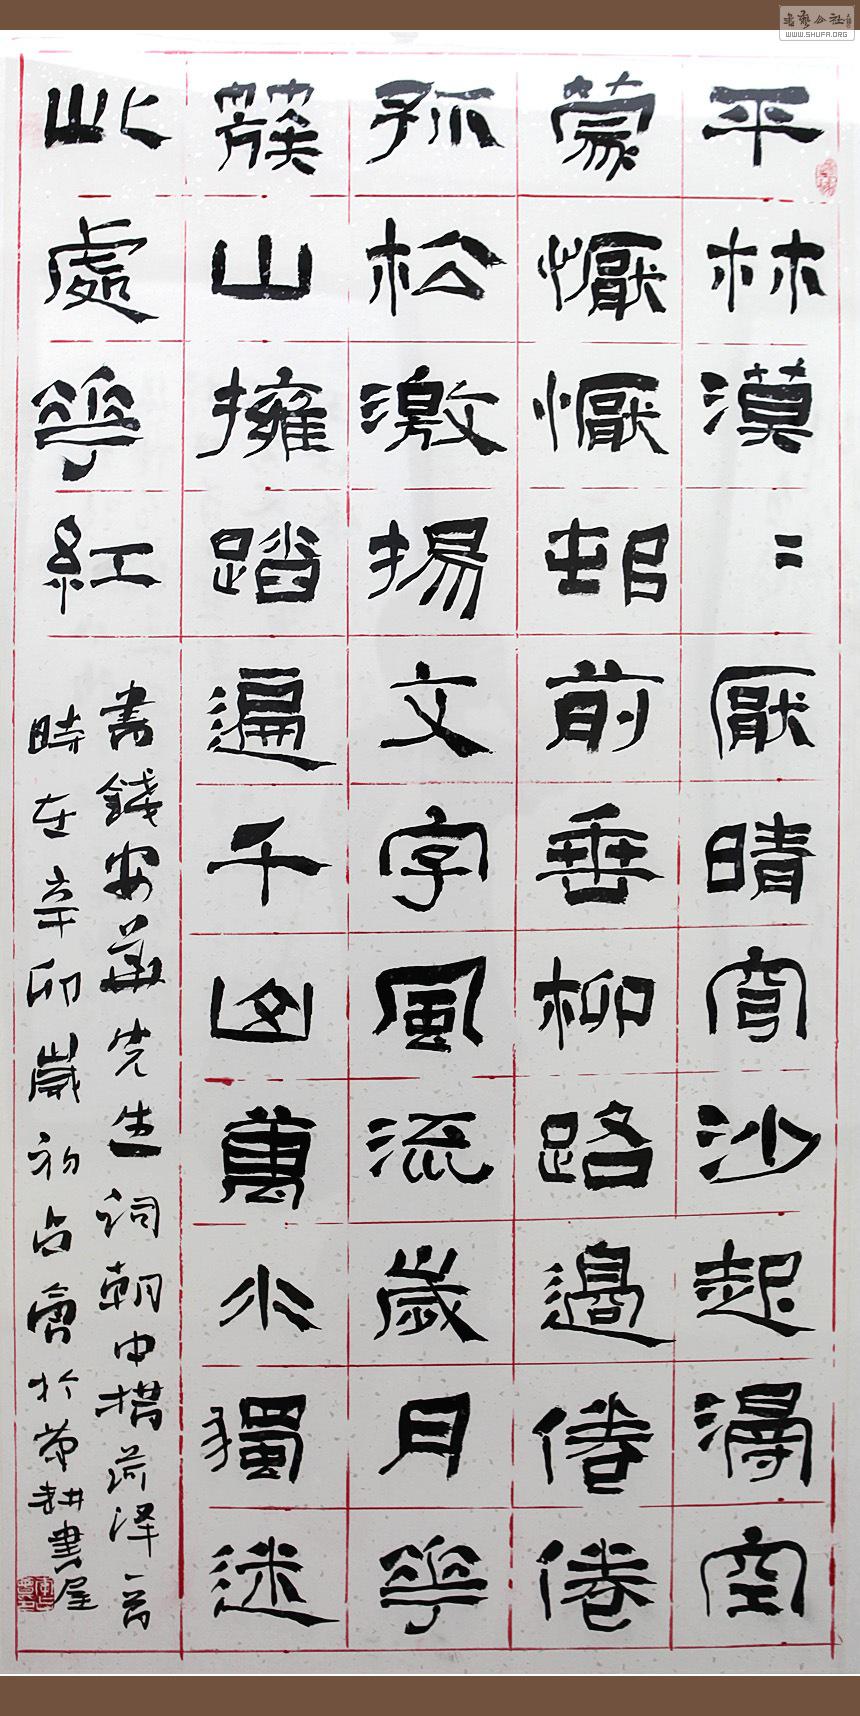 平林漠〻厭晴穹沙起淂空
蒙懨懨邨前垂柳路邊倦倦
孤松激揚文字風流歲月華
蔟山擁踏遍千山萬水獨迷
此處華紅
書錢安華先生詞朝中措菏泽一首
時在辛卯歲初占於耕書屋
书艺公社
WWW.SHUFA.ORG